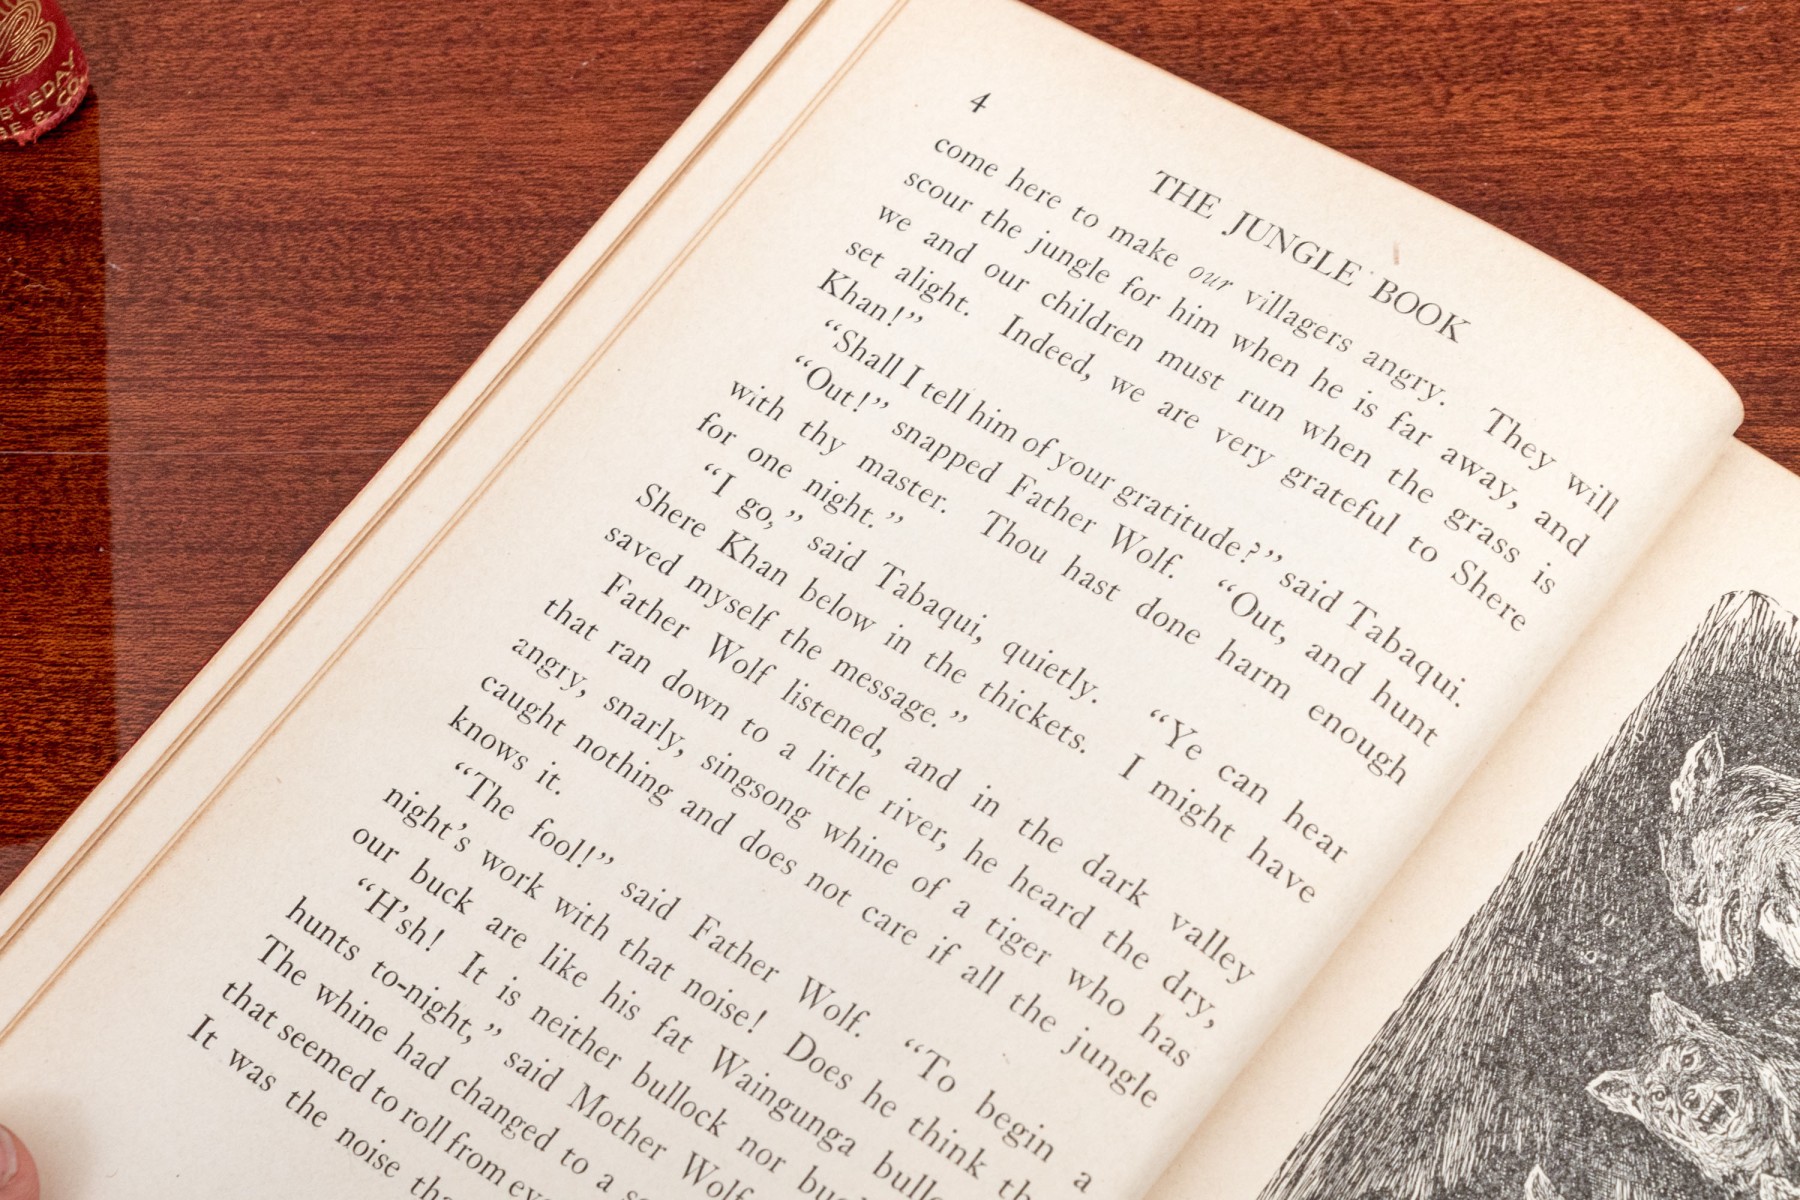 BLEDAY
& CO.
4
THE JUNGLE BOOK
come here to make our villagers angry. They will
scour the jungle for him when he is far away, and
we and our children must run when the grass is
set alight. Indeed, we are very grateful to Shere
Khan!”
“Shall I tell him of your gratitude?” said Tabaqui.
“Out!” snapped Father Wolf. “Out, and hunt
with thy master. Thou hast done harm enough
for one night.”
“I go,” said Tabaqui, quietly. “Ye can hear
Shere Khan below in the thickets. I might have
saved myself the message.”
Father Wolf listened, and in the dark valley
that ran down to a little river, he heard the dry,
angry, snarly, singsong whine of a tiger who has
caught nothing and does not care if all the jungle
knows it.
“The fool!” said Father Wolf. “To begin a
night’s work with that noise! Does he think
our buck are like his fat Waingunga
“H’sh! It is neither bullock nor
hunts to-night,” said Mother Wolf.
The whine had changed to a
that seemed to roll from
It was the noise